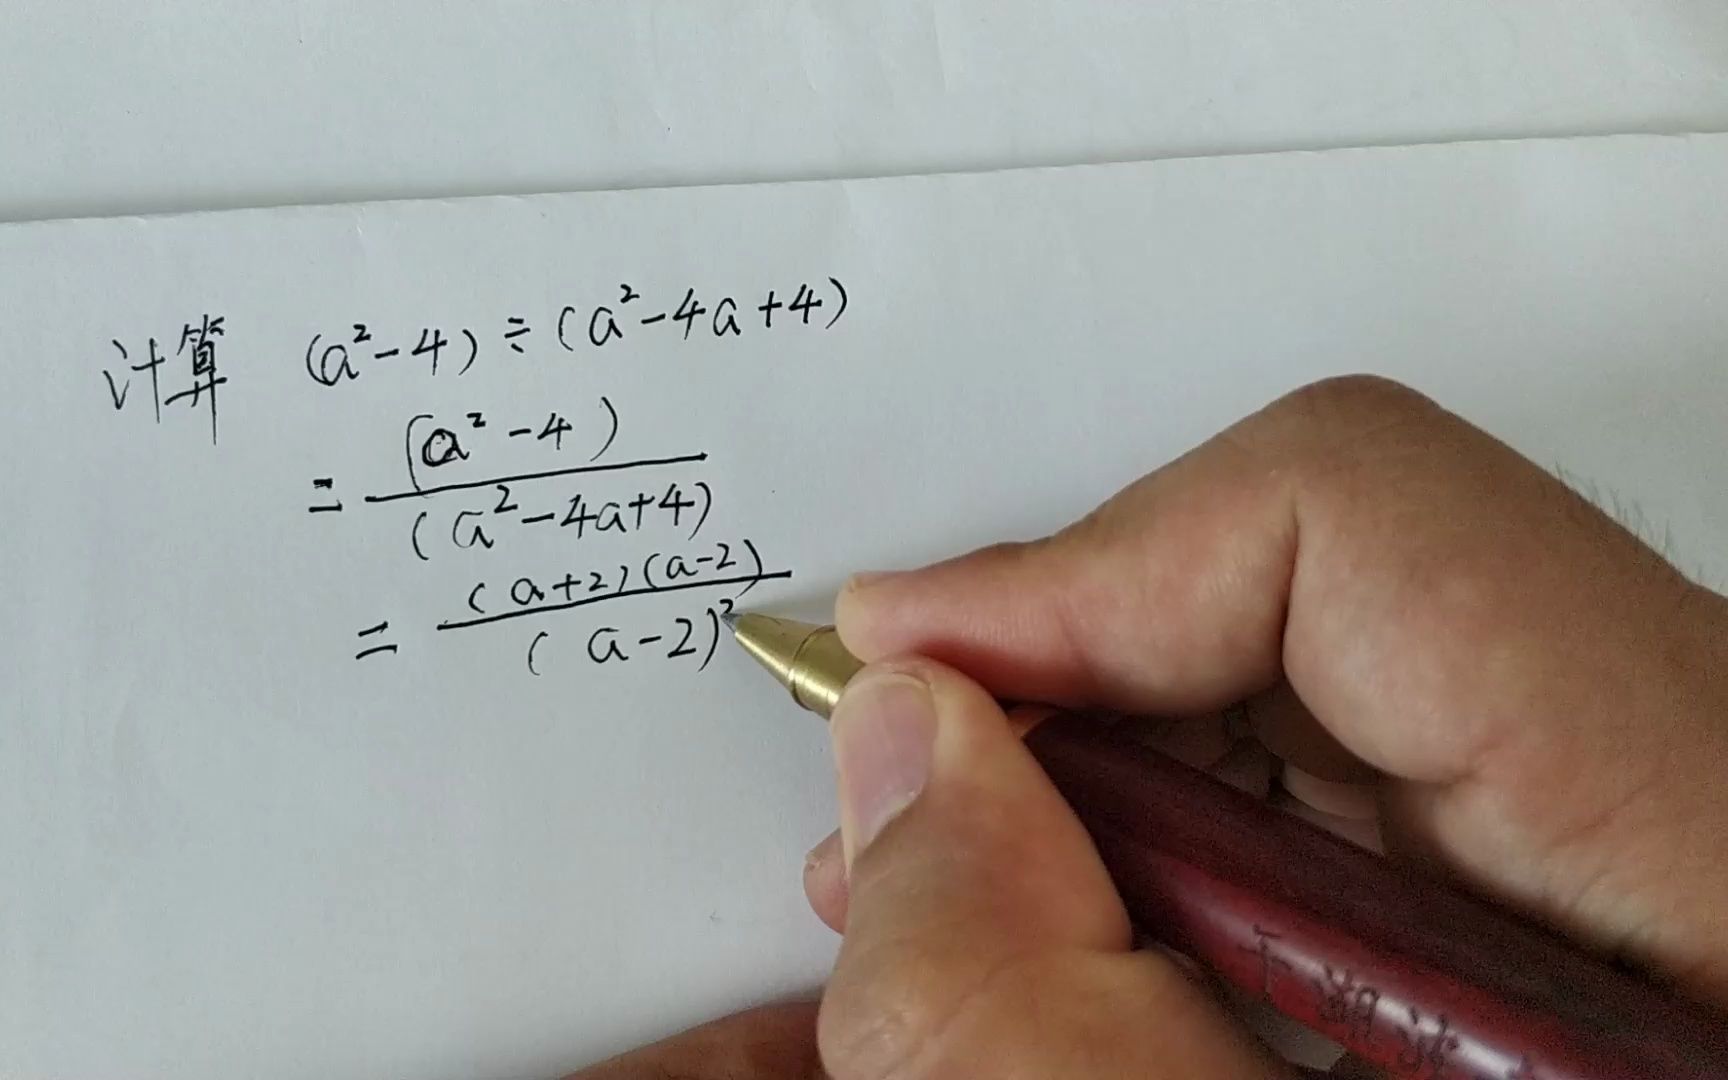 计算 (a²-4)÷(a²-4a+4)
= (a²-4) / (a²-4a+4)
= (a+2)(a-2) / (a-2)²